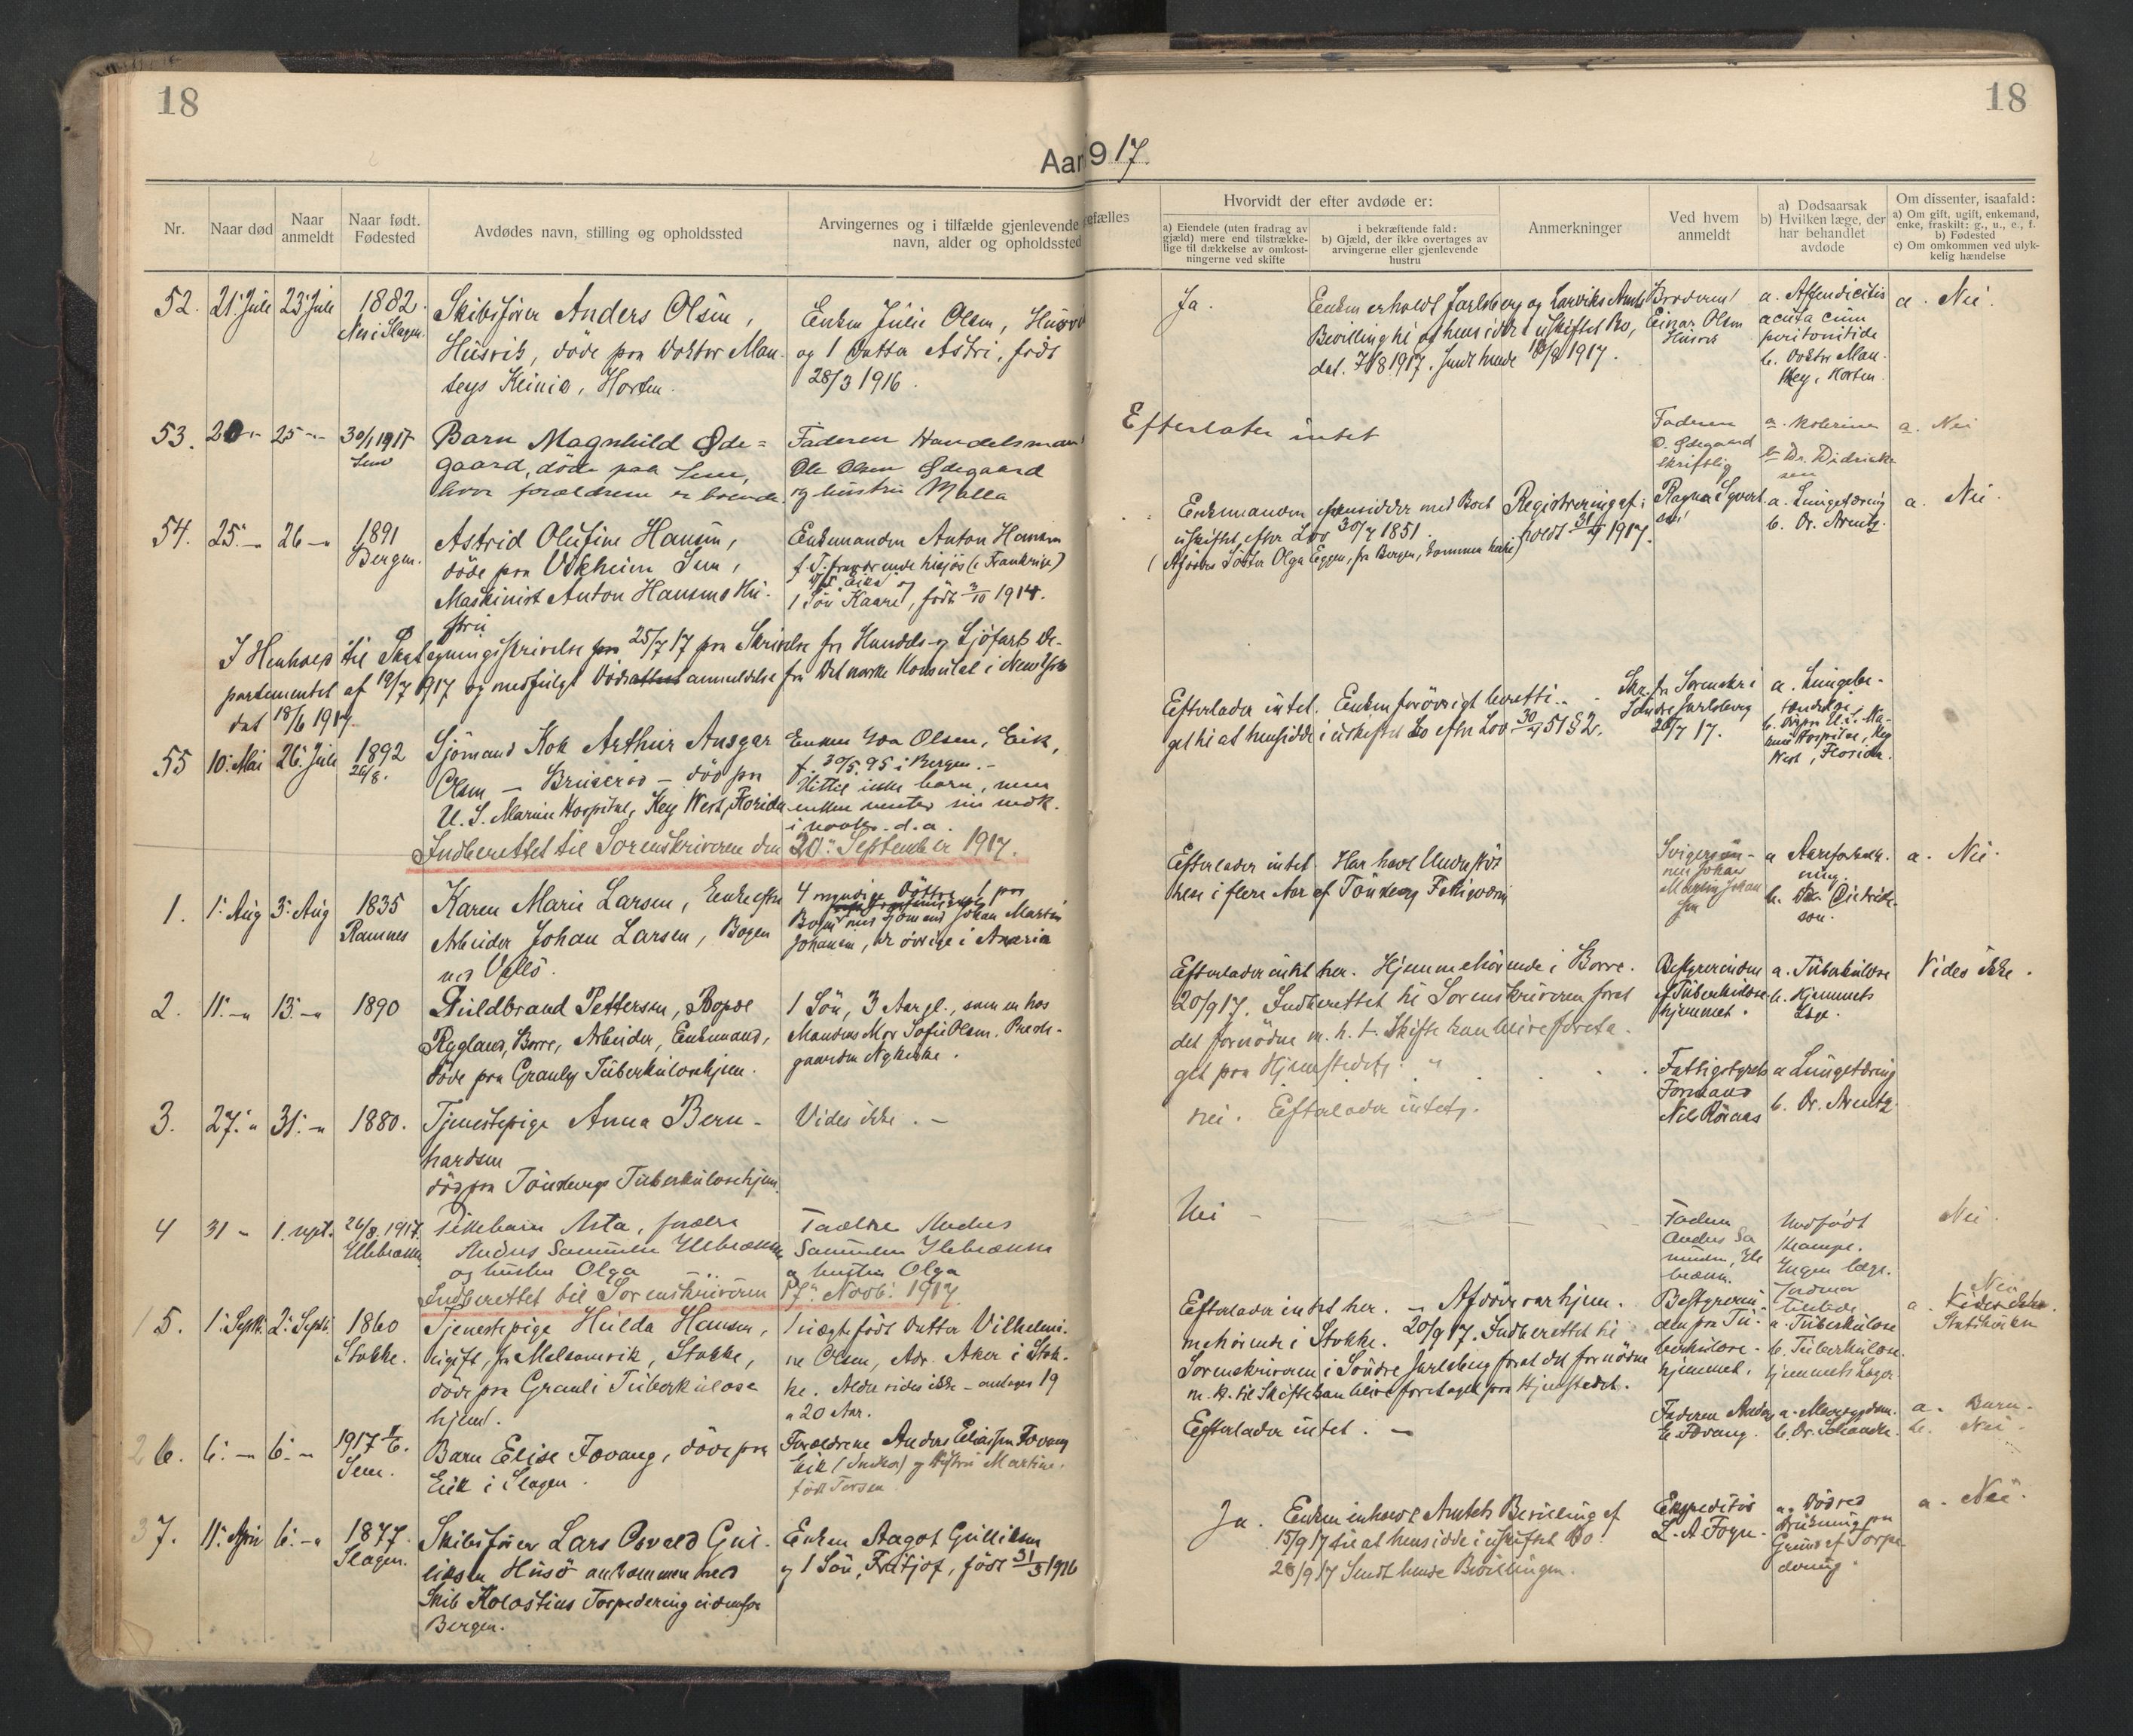 18
18
Aar 1917.
Nr.
Naar død
Naar anmeldt
Naar født. Fødested
Avdødes navn, stilling og opholdssted
Arvingernes og i tilfælde gjenlevende
navn, alder og opholdssted
efælles
Hvorvidt der efter avdøde er:
a) Eiendele (uten fradrag av
gjæld) mere end tilstrække-
lige til dækkelse av omkost-
ningerne ved skifte
i bekræftende fald:
b) Gjæld, der ikke overtages av
arvingerne eller gjenlevende
hustru
Anmerkninger
Ved hvem
anmeldt
a) Dødsaarsak
b) Hvilken læge, der
har behandlet
avdøde
Om dissenter, isaafald:
a) Om gift, ugift, enkemand,
enke, fraskilt: g., u., e., f.
b) Fødested
c) Om omkommen ved ulyk-
kelig hændelse
52. 21. Juli 23. Juli 1882. Skibsfører Anders Olsen,
Husvik, døde paa Doktor Man-
teys Klinik, Horten.
Enken Julie Olsen,
og 1 Datter Astri, født
28/3 1916.
Ja.
Enken erholdt Jarlsberg og Larviks Amts
Bevilling til at hensidde i uskiftet Bo,
dat. 7/8 1917. Sendt hende 1917.
Broderen
Einar Olsen
Husvik
a. Appendicitis
acuta cum
peritonitide
b. Doktor Man-
tey, Horten.
a. Nei.
53. 25 30/1 1917 Barn Magnhild Øde=
Sem
gaard, døde paa Sem,
hvor forældrene er boende.
Faderen Handelsmand
Ole Olsen Ødegaard
og hustru Malla
Efterlater intet
Faderen
O. Ødegaard
skriftlig
a. Kolerine
b. Dr. Didrick-
sen
a. Nei
54. 25. 26 1891
Bergen.
Astrid Olufine Hansen,
døde paa Sem,
Maskinist Anton Hansens Hu-
stru
Enkemanden Anton Hansen
f. T. fraværende tilsjøs (i Frankrige)
1 Søn Kaare, født 3/10 1914.
Enkemanden hensidder med Boet
uskiftet efter Lov 30/7 1851.
(Afdødes Søster Olga Eggen, fra Bergen, kommen hertil)
Registrering af-
holdt 1917.
Ragna
a. Lungetæring
b. Dr. Arentz.
a. Nei.
I Henhold til Paategningsskrivelse 25/7 17 paa Skrivelse fra Handels- og Sjøfarts De-
partementet af 19/7 1917 og medfulgt Dødsanmeldelse fra Det norske Konsulat i New York
dat 18/6 1917.
55 10. Mai 26. Juli 1892
26/8.
Sjømand Kok Arthur Ansgar
Olsen – – død paa
U. S. Marine Hospital, Key West, Florida
Enken Olsen, Eik,
f. 30/5 95 i Bergen. –
Hittil ikke barn, men
enken venter sin nedk.
i novbr. d. a.
Efterlader intet. Enken forøvrigt beretti-
get til at hensidde i uskiftet Bo efter Lov 30/7 51 § 2.
Skr. fra Sorenskri
Søndre Jarlsberg
26/7 17.
a. Lungebe-
tændelse,
b. Lægen U. S. Ma-
rine Hospital, Key
West, Florida.
Indberettet til Sorenskriveren den 20. September 1917.
1. 1. Aug 3. Aug 1835
Ramnes
Karen Marie Larsen, Enke efter
Arbeider Johan Larsen, Bogen
ved Vallø.
4 myndige Døttre, 1 paa
Bogen med Sjømand Johan Martin
Johansen, de øvrige i Amerika
Efterlader intet. Har havt Understøt-
telse i flere Aar af Tønsberg Fattigvæsen
Svigersøn-
nen Johan
Martin Johan
sen
a. Aareforkalk-
ning.
b. Dr. Didrick-
sen.
a. Nei.
2. 11. 13. 1890
Hildbrand Pettersen,
Rygland, Borre, Arbeider, Enkemand,
døde paa Granly Tuberkulosehjem.
1 Søn, 3 Aar gl., som er hos
Mandens Mor Sofie Olsen, Preste-
gaarden Nykirke.
Efterlader intet her. Hjemmehørende i Borre.
20/9 17. Indberettet til Sorenskriveren forat
det fornødne m. h. t. Skifte kan blive foreta-
get paa Hjemstedet.
Bestyrerinden
af Tuberkulose-
hjemmet.
a. Tuberkulose
b. Hjemmets
Læge.
Vides ikke.
3. 27. 31. 1880.
Tjenestepige Anna Bern-
hardsen
død paa Tønsbergs Tuberkulosehjem.
Vides ikke. –
nei. Efterlader intet.
Fattigstyrets
Formand
Nils Røraas
a. Lungetæring
b. Dr. Arentz.
4 31 1. sept. 26/8. 1917.
Pikebarn Asta, forældre
og hustru Olga
Forældre Anders
og hustru Olga
Nei
Faderen
Anders
Nødfødt
Krampe.
Ingen læge.
Nei.
Indberettet til Sorenskriveren 17. Novb. 1917
1 5. 1. Septb. 2. Septb. 1860
Stokke.
Tjenestepige Hulda Hansen,
ugift, fra Melsomvik, Stokke,
døde paa Granli Tuberkulose
hjem.
1 uægtefødt Datter Vilhelmi-
ne Olsen, Adr. Aker i Stok-
ke. Alder vides ikke – antages 19
a 20 Aar.
Efterlader intet her. – Afdøde var hjem-
mehørende i Stokke. 20/9 17. Indberettet til
Sorenskriveren i Søndre Jarlsberg forat det fornødne
m. h. til Skifte kan blive foretaget paa Hjemstedet.
Bestyrerin-
den paa Tu-
berkulose-
hjemmet.
a. Tuberkulose
b. Tuberkulose-
hjemmets Læge.
2 6. 6. 6. 1917
Sem.
Barn Elise Fovang, døde paa
Eik i Slagen.
Forældrene Anders Eliassen Fovang
Eik og Hustru Martine,
Efterlader intet. –
Faderen Anders
E. Fovang.
a. Barn.
b. Nei.
3 7. 11. April 6. 1877
Slagen.
Skibsfører Lars Osvald Gul-
liksen Husø omkommen ved
Skib Torpedering udenfor
Bergen.
Enken Aagot Gulliksen
og 1 Søn, Fritjof, født 31/3 1916
Ja. Enken indhavde Amtets Bevilling af
15/9 17 til at hensidde i uskiftet Bo.
28/9 17 Sendt hende Bevillingen.
Ekspeditør
L. A. Foyn.
a. Død ved
drukning paa
Grund af Torpe-
dering.
a. Nei.